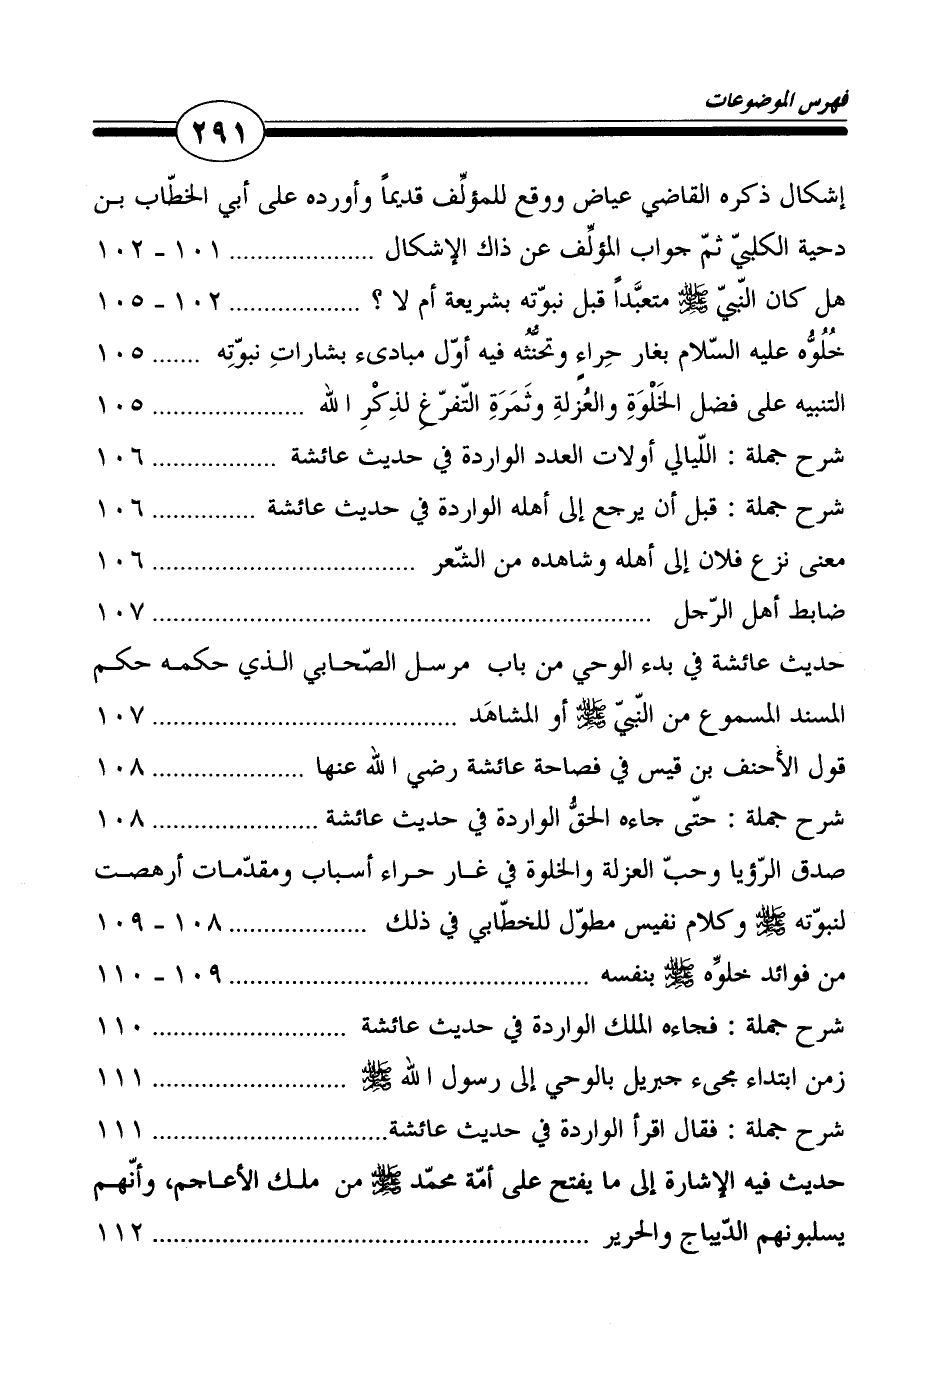 فهرس الموضوعات
٢٩١
إشكال ذكره القاضي عياض ووقع للمؤلِّف قديماً وأورده على أبي الخطّاب بن
دحية الكلبيّ ثمّ جواب المؤلِّف عن ذاك الإشكال ..................... ١٠١ - ١٠٢
هل كان النّبيّ ﷺ متعبَّداً قبل نبوّته بشريعة أم لا ؟ ................... ١٠٢ - ١٠٥
خُلُوُّه عليه السّلام بغار حِراءٍ وتحنُّثه فيه أوّل مبادىء بشاراتِ نبوّتِه ....... ١٠٥
التنبيه على فضل الخَلْوَةِ والعُزلةِ وثَمَرَةِ التّفرّغِ لذِكْرِ الله ...................... ١٠٥
شرح جملة : اللّيالي أولات العدد الواردة في حديث عائشة .................. ١٠٦
شرح جملة : قبل أن يرجع إلى أهله الواردة في حديث عائشة ............... ١٠٦
معنى نزع فلان إلى أهله وشاهده من الشّعر ...................................... ١٠٦
ضابط أهل الرّجل ........................................................................ ١٠٧
حديث عائشة في بدء الوحي من باب مرسل الصّحابي الذي حكمه حكم
المسند المسموع من النّبيّ ﷺ أو المشاهَد ............................................ ١٠٧
قول الأحنف بن قيس في فصاحة عائشة رضي الله عنها ...................... ١٠٨
شرح جملة : حتّى جاءه الحقُّ الواردة في حديث عائشة ........................ ١٠٨
صدق الرّؤيا وحبّ العزلة والخلوة في غار حراء أسباب ومقدّمات أرهصت
لنبوّته ﷺ وكلام نفيس مطوّل للخطّابي في ذلك .................... ١٠٨ - ١٠٩
من فوائد خلوِّه ﷺ بنفسه .................................................... ١٠٩ - ١١٠
شرح جملة : فجاءه الملك الواردة في حديث عائشة ............................ ١١٠
زمن ابتداء مجيء جبريل بالوحي إلى رسول الله ﷺ ............................ ١١١
شرح جملة : فقال اقرأ الواردة في حديث عائشة.................................. ١١١
حديث فيه الإشارة إلى ما يفتح على أمّة محمّد ﷺ من ملك الأعاجم، وأنّهم
يسلبونهم الدّيباج والحرير ............................................................... ١١٢